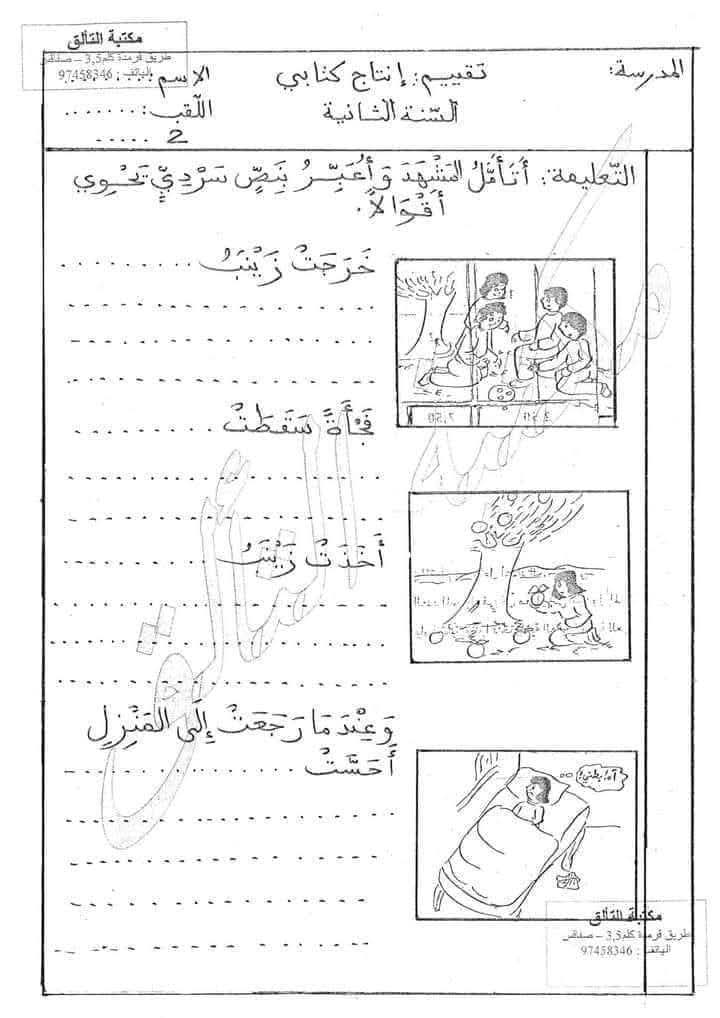 مكتبة التألق
طريق قرمدة كلم3,5 – صفاقس
الهاتف : 97458346
المدرسة:
تقييم: إنتاج كتابي
الاسم
السّنة الثانية
اللّقب: .......
2 .....
التّعليمة: أَتَأَمَّلُ المَشْهَدَ وَأُعَبِّرُ بِنَصٍّ سَرْدِيٍّ يَحْوِي
أَقْوَالاً.
خَرَجَتْ زَيْنَبُ ..........
فَجْأَةً سَقَطَتْ ..........
أَخَذَتْ زَيْنَبُ ..........
وَعِنْدَمَا رَجَعَتْ إِلَى المَنْزِلِ
أَحَسَّتْ ..........
آه! بطني!
مكتبة التألق
طريق قرمدة كلم3,5 – صفاقس
الهاتف : 97458346